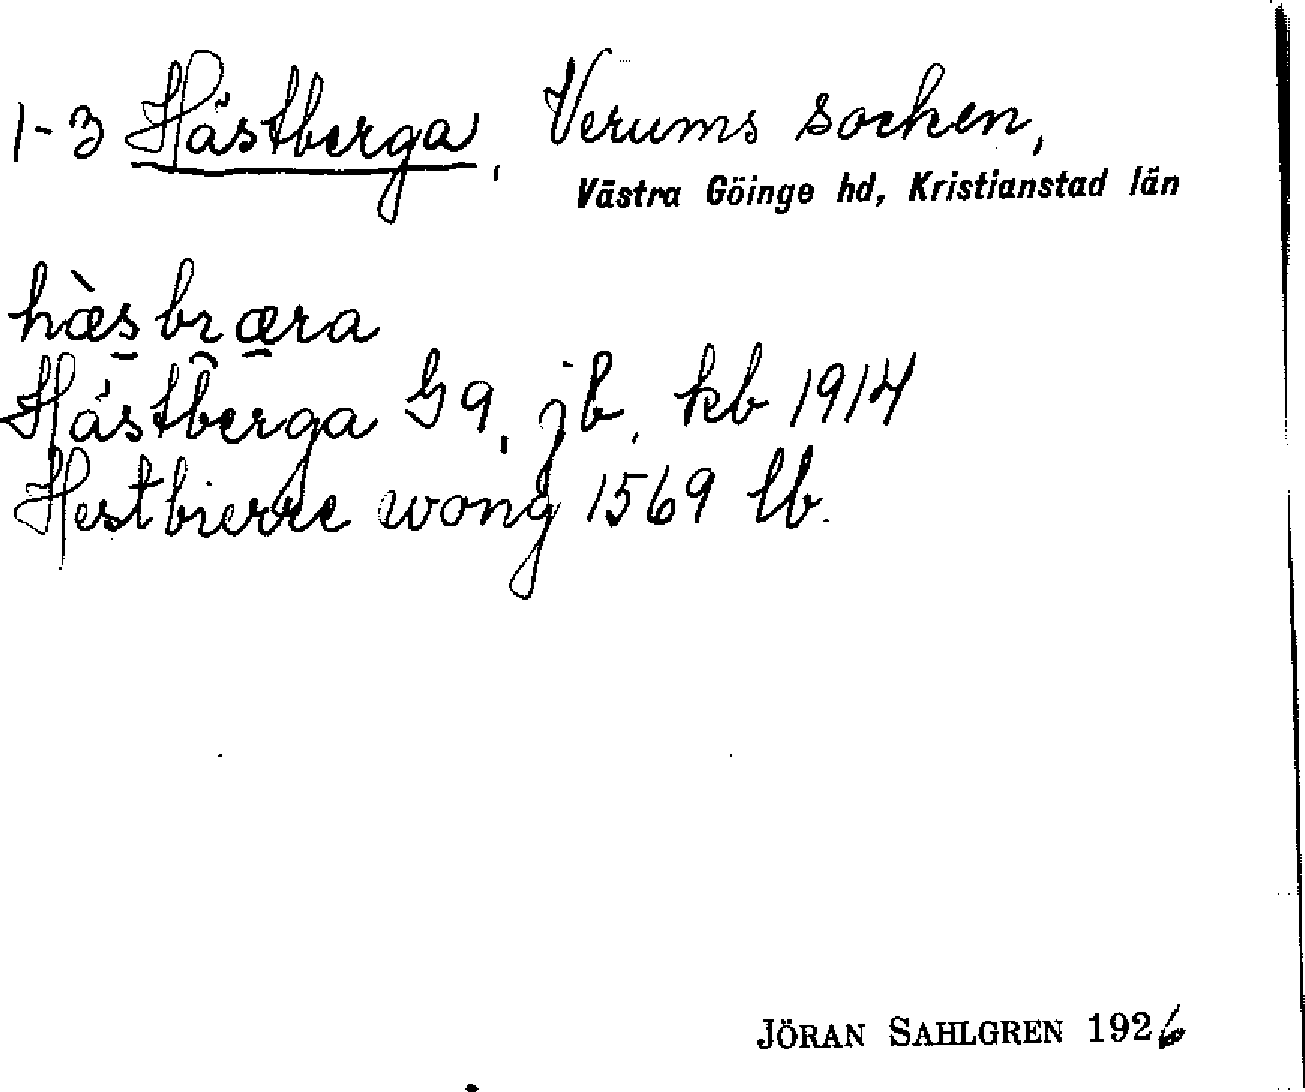 1-3 Hästberga, Verums socken,
Västra Göinge hd, Kristianstad län
hæ̀s̠bræ̠ra
Hästberga G 9, jb, kb 1914
Hestbierre wong 1569 lb.
JÖRAN SAHLGREN 1926